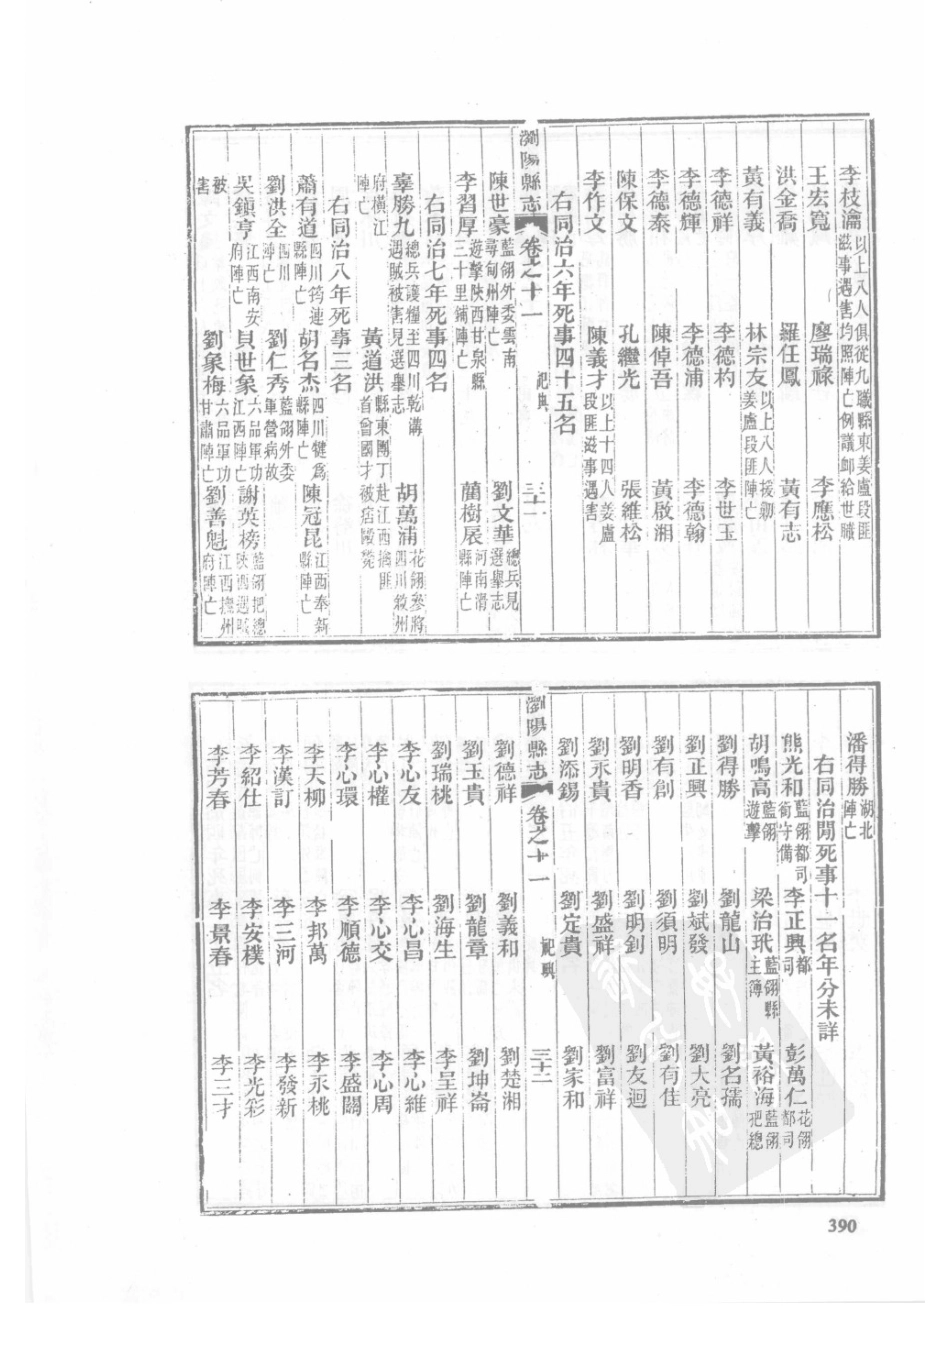 李枝瀹以上八人俱從九職縣東姜盧段匪滋事遇害均照陣亡例議卹給世職
王宏寬 廖瑞祿 李應松
洪金喬 羅任鳳 黃有志
黃有義 林宗友以上八人援剿姜盧段匪陣亡
李德祥 李德杓 李世玉
李德輝 李德浦 李德翰
李德泰 陳倬吾 黃啟湘
陳保文 孔繼光 張維松
李作文 陳義才以上十四人姜盧段匪滋事遇害
右同治六年死事四十五名
瀏陽縣志 卷之十一 祀典 三十二
陳世豪藍翎外委雲南尋甸州陣亡 劉文華總兵見選舉志
李習厚遊擊陝西甘泉縣三十里鋪陣亡 藺樹辰河南滑縣陣亡
右同治七年死事四名
辜勝九總兵護糧至四川乾溝遇賊被害見選舉志 胡萬浦花翎參將四川敘州
府橫江陣亡 黃道洪縣東團丁赴江西擒匪首曾國才被𤵜
右同治八年死事三名
蕭有道四川筠連縣陣亡 胡名杰四川犍為縣陣亡 陳冠昆江西奉新縣陣亡
劉洪全四川陣亡 劉仁秀藍翎外委軍營病故 謝英榜藍翎把總陝西遇賊
被害
吳鎮亨江西南安府陣亡 貝世象六品軍功江西陣亡 劉善魁江西撫州府陣亡
劉象梅六品軍功甘肅陣亡
潘得勝湖北陣亡
右同治閒死事十一名年分未詳
熊光和藍翎都司銜守備 李正興都司 彭萬仁花翎都司
胡鳴高藍翎遊擊 梁治玳藍翎縣主簿 黃裕海藍翎把總
劉得勝 劉龍山 劉名孺
劉正興 劉斌發 劉大亮
劉有創 劉須明 劉有佳
劉明香 劉明釗 劉友迴
劉永貴 劉盛祥 劉富祥
劉添錫 劉定貴 劉家和
瀏陽縣志 卷之十一 祀典 三十二
劉德祥 劉義和 劉楚湘
劉玉貴 劉龍章 劉坤崙
劉瑞桃 劉海生 李呈祥
李心友 李心昌 李心維
李心權 李心交 李心周
李心環 李順德 李盛闊
李天柳 李邦萬 李永桃
李漢訂 李三河 李發新
李紹仕 李安樸 李光彩
李芳春 李景春 李三才
390